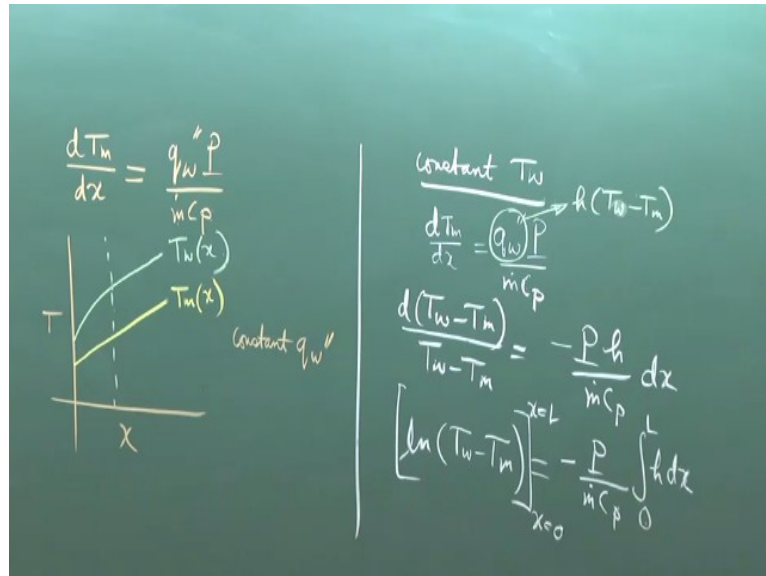 dTm/dx = qw″ P/ṁCp
Tw(x)
Tm(x)
T
constant qw″
x
constant Tw
dTm/dx = qw″ P/ṁCp → h(Tw-Tm)
d(Tw-Tm)/Tw-Tm = -Ph/ṁCp dx
[ln(Tw-Tm)]x=0 x=L = -P/ṁCp ∫0 L hdx